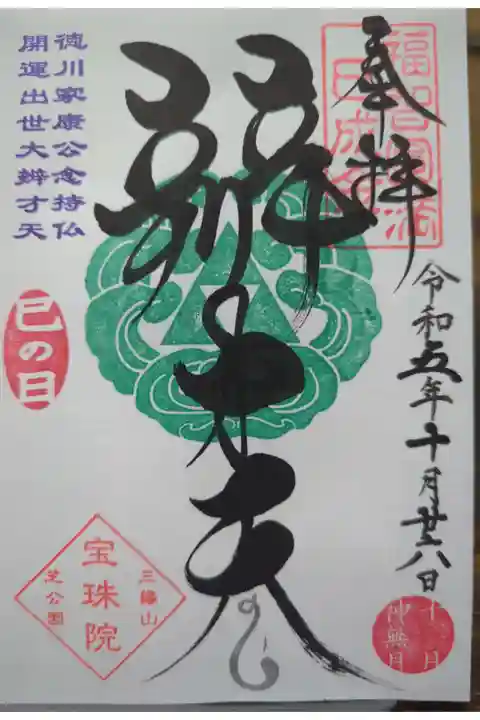 奉拝
令和五年十月廿八日
十月
神無月
辨才天
徳川家康公念持仏
開運出世大辨才天
巳の日
三縁山
宝珠院
芝公園